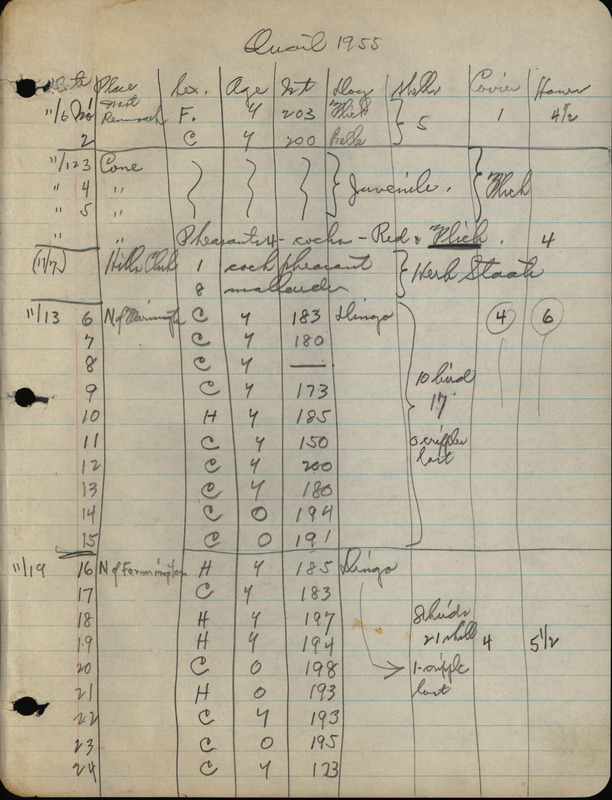 Quail 1955
Date Place Sex. Age Wt Dog Shells Covies Hours
11/6 1 East F. Y 203 Flick 5 1 4 1/2
2 C Y 200 Belle
11/12 3 Cone Juvenile. Flick
" 4 "
" 5 "
" " Pheasants 4 - cocks - Red & Flick. 4
(11/7) Hills Club 1 cock pheasant Herb Staats
8 mallards
11/13 6 N of Farmington C Y 183 Dingo 4 6
7 C Y 180
8 C Y —
9 C Y 173 10 bird
10 H Y 185 17
11 C Y 150 0 cripples
12 C Y 200 lost
13 C Y 180
14 C O 194
15 C O 191
11/19 16 N of Farmington H Y 185 Dingo
17 C Y 183
18 H Y 197 8 birds
19 H Y 194 21 shell 4 5 1/2
20 C O 198 1 cripple
21 H O 193 lost
22 C Y 193
23 C O 195
24 C Y 173